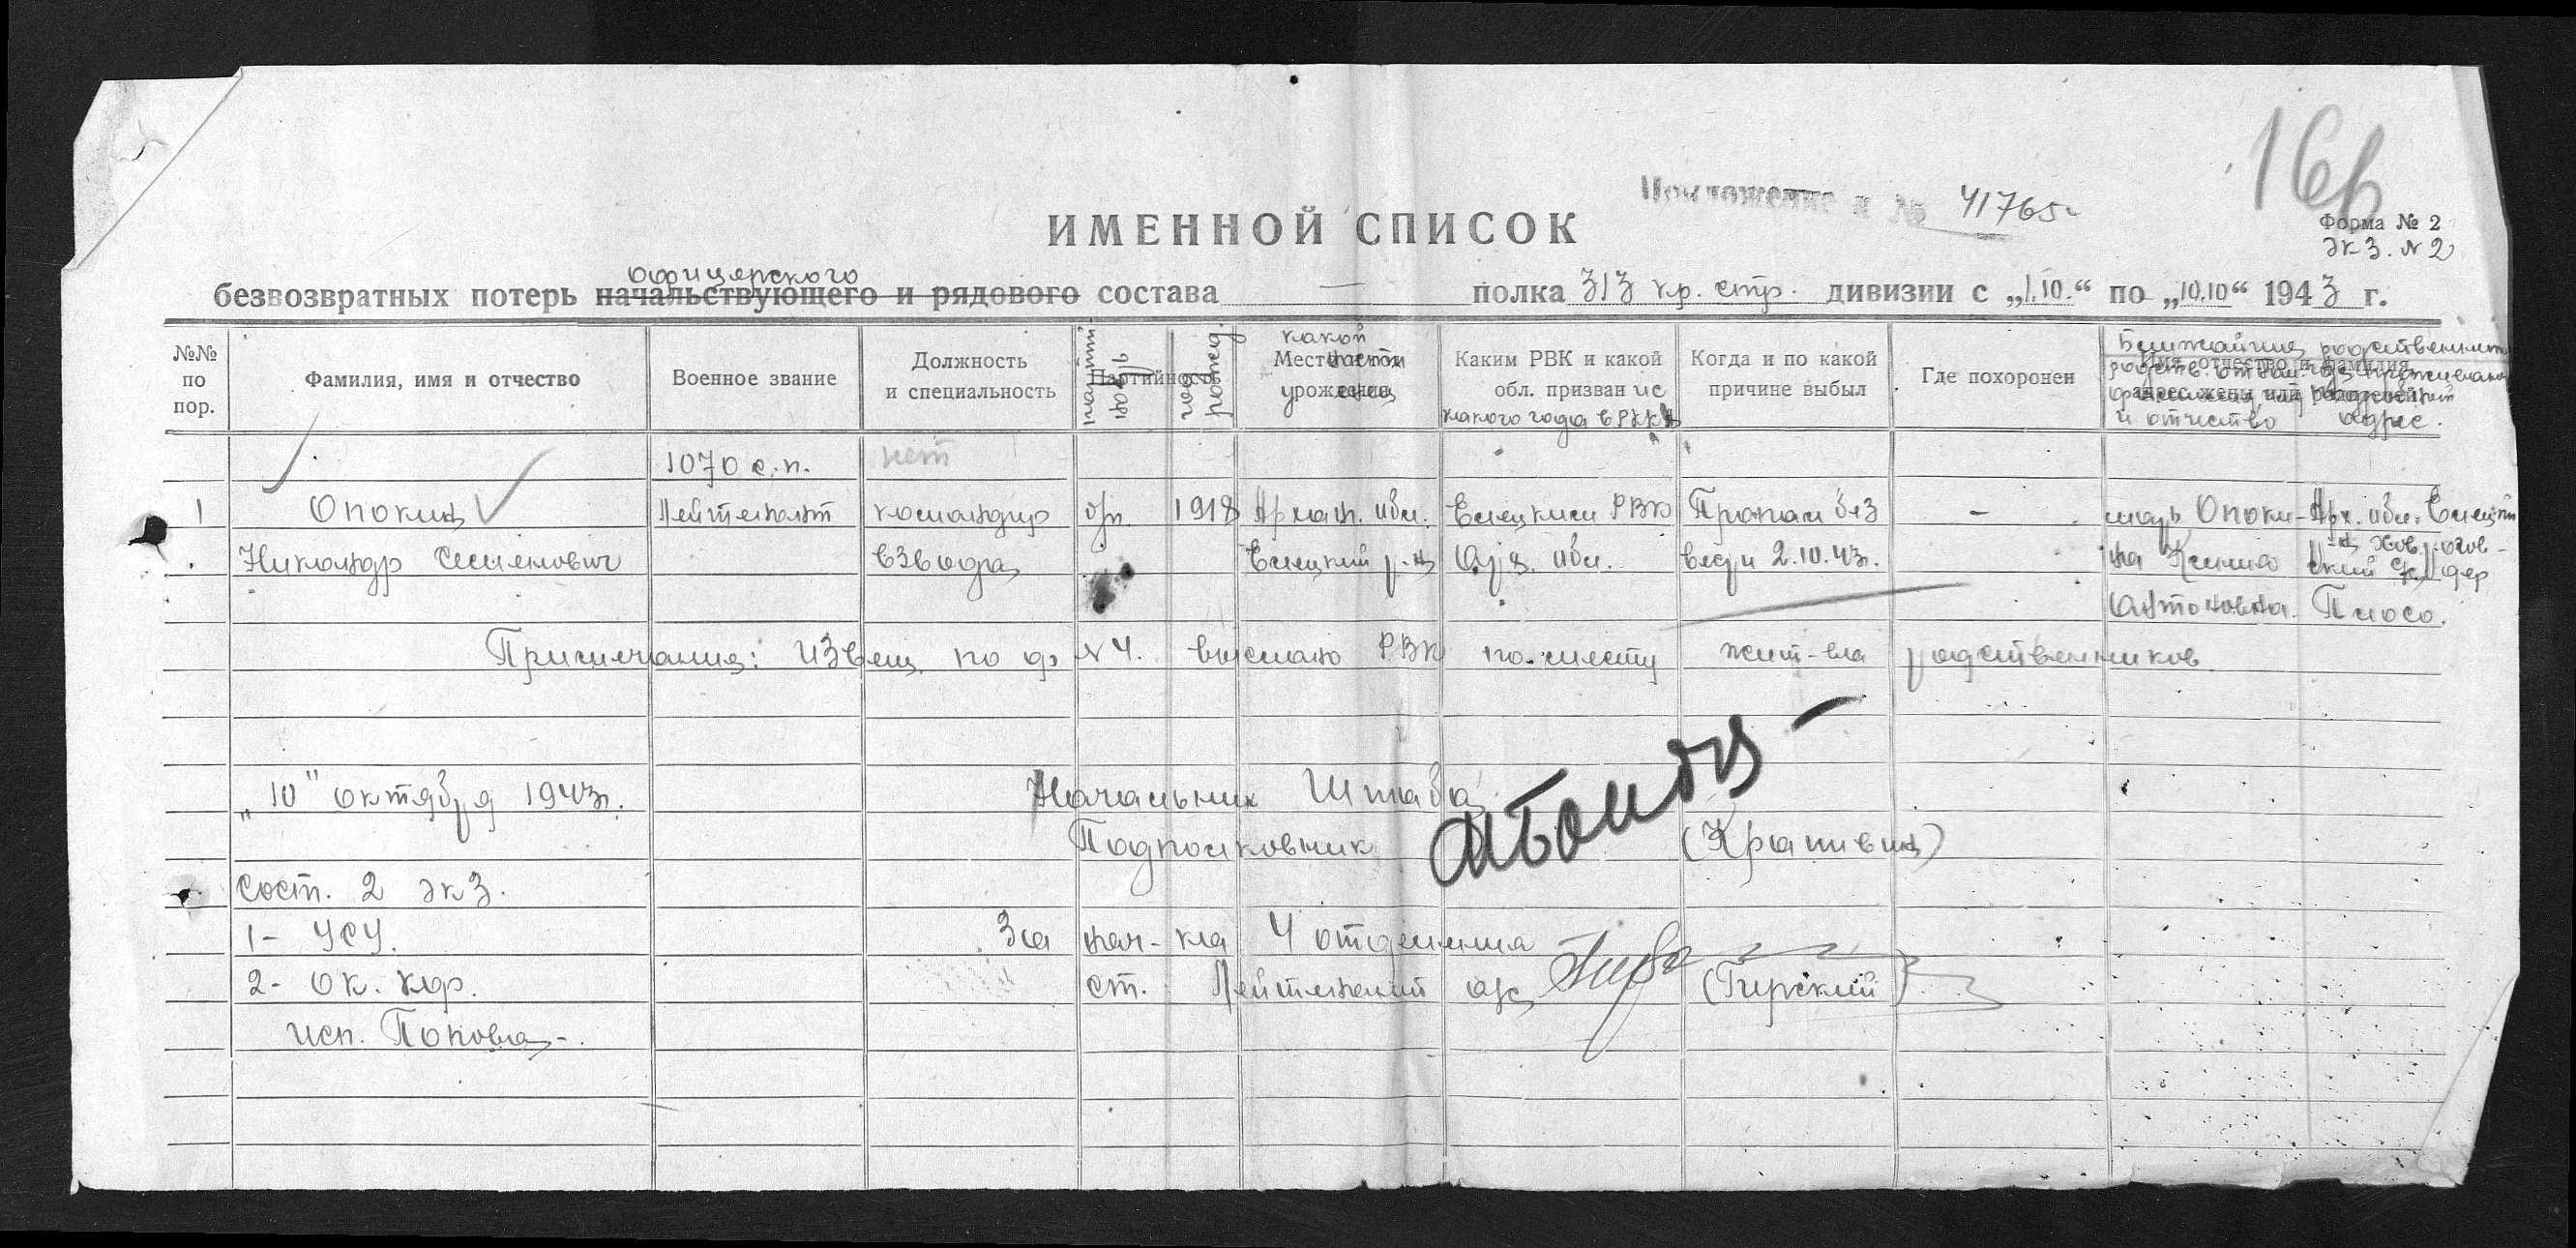 16
Приложение к № 41765
ИМЕННОЙ СПИСОК
Форма № 2
экз. № 2
офицерского
безвозвратных потерь начальствующего и рядового состава — полка 313 кр. стр. дивизии с „1.10.“ по „10.10“ 1943 г.
№№ по пор.
Фамилия, имя и отчество
Военное звание
Должность и специальность
Партийность
год рожд.
какой
Место
урожен
Каким РВК и какой обл. призван и с какого года в РККА
Когда и по какой причине выбыл
Где похоронен
Имя, отчество и фамилия
адрес жены или родителей
и отчество адрес.
1070 с.п.
нет
1 Опокин Лейтенант командир б/п. 1918 Архан. обл. Емецким РВК Пропал без – мать Опоки- Арх. обл. Емецкий
Никандр Семенович взвода Емецкий р-н Арх. обл. вести 2.10.43. на Ксения
Антоновна.
Примечание: Извещ. по ф №4. выслано РВК по месту жит-ва родственников
„10" октября 1943г. Начальник Штаба
Подполковник (Крапивин)
Сост. 2 экз.
1- УСУ. За нач-ка 4 отделения
2- ок. кор. ст. Лейтенант а/с (Гирский)
исп. Попова